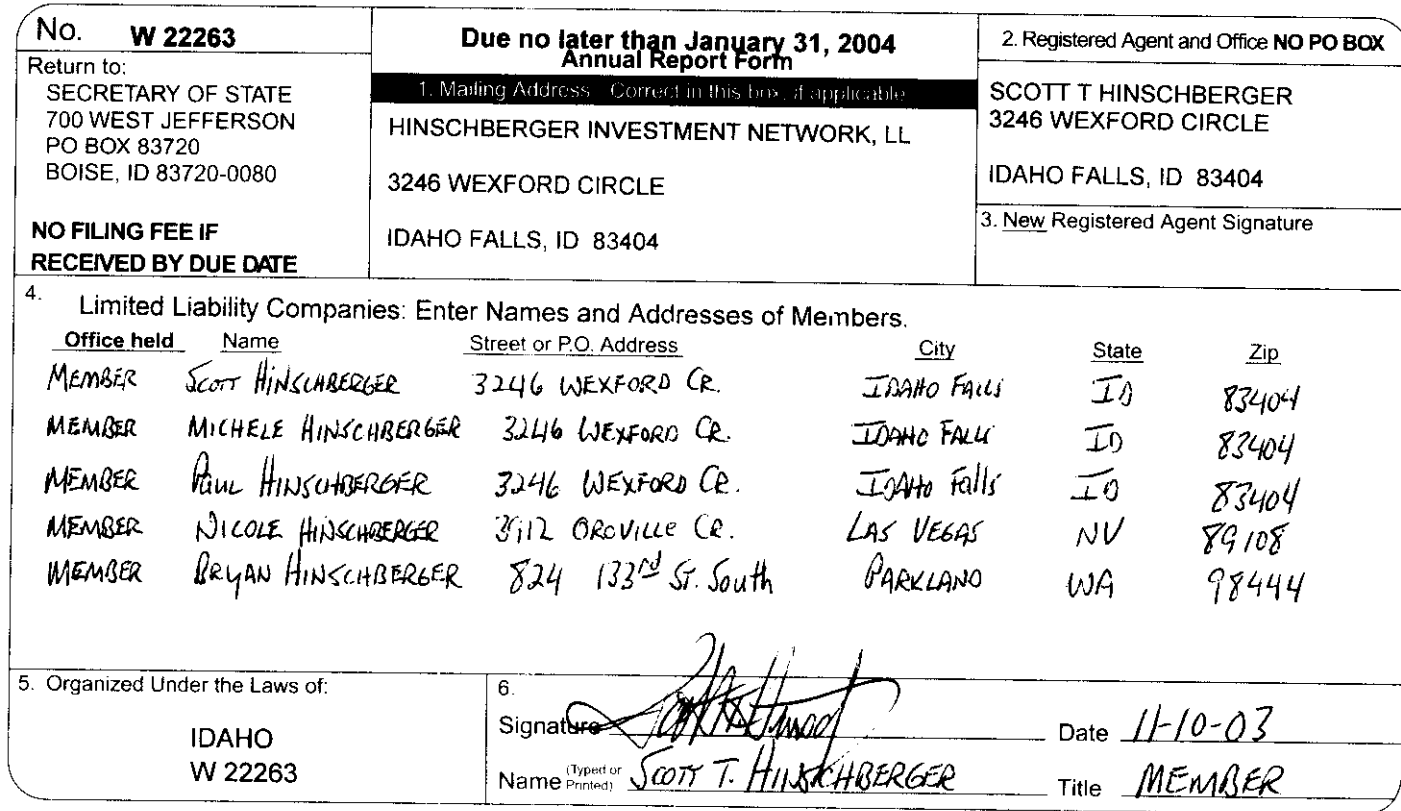 No. W 22263
Return to:
SECRETARY OF STATE
700 WEST JEFFERSON
PO BOX 83720
BOISE, ID 83720-0080
NO FILING FEE IF
RECEIVED BY DUE DATE
Due no later than January 31, 2004
Annual Report Form
1. Mailing Address Correct in this box, if applicable
HINSCHBERGER INVESTMENT NETWORK, LL
3246 WEXFORD CIRCLE
IDAHO FALLS, ID 83404
2. Registered Agent and Office NO PO BOX
SCOTT T HINSCHBERGER
3246 WEXFORD CIRCLE
IDAHO FALLS, ID 83404
3. New Registered Agent Signature
4. Limited Liability Companies: Enter Names and Addresses of Members.
Office held Name Street or P.O. Address City State Zip
MEMBER SCOTT HINSCHBERGER 3246 WEXFORD CR. IDAHO FALLS ID 83404
MEMBER MICHELE HINSCHBERGER 3246 WEXFORD CR. IDAHO FALLS ID 83404
MEMBER PAUL HINSCHBERGER 3246 WEXFORD CR. IDAHO Falls ID 83404
MEMBER NICOLE HINSCHBERGER 3112 OROVILLE CR. LAS VEGAS NV 89108
MEMBER BRYAN HINSCHBERGER 824 133rd ST. South PARKLAND WA 98444
5. Organized Under the Laws of:
IDAHO
W 22263
6.
Signature Date 11-10-03
Name (Typed or Printed) SCOTT T. HINSCHBERGER Title MEMBER